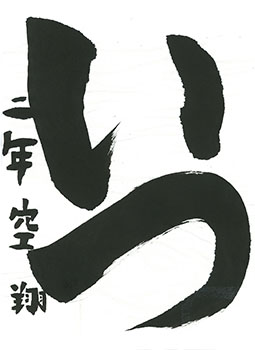 いつ
二年空翔